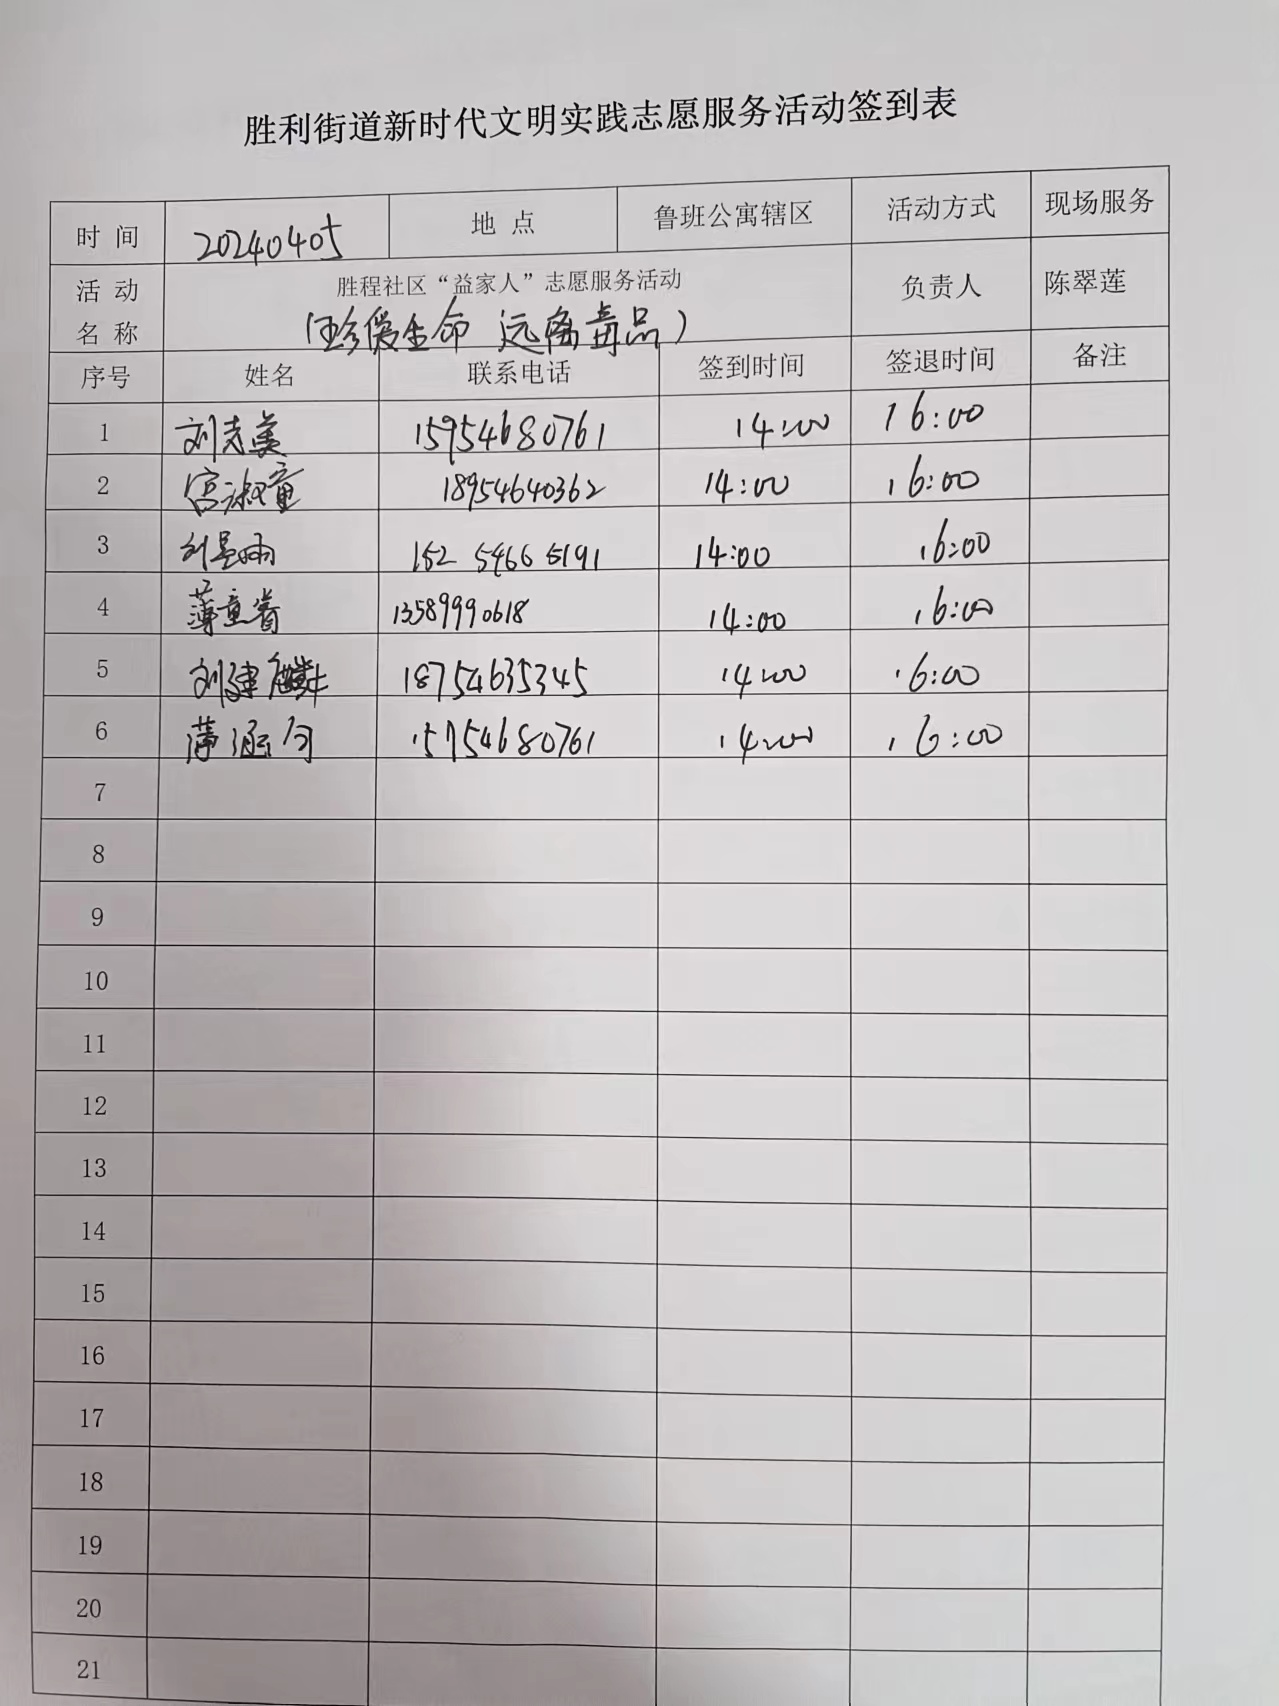 胜利街道新时代文明实践志愿服务活动签到表
时 间 20240405 地 点 鲁班公寓辖区 活动方式 现场服务
活 动 名 称 胜程社区“益家人”志愿服务活动 负责人 陈翠莲
(珍爱生命 远离毒品)
序号 姓名 联系电话 签到时间 签退时间 备注
1 刘志美 15954680761 14:00 16:00
2 宫淑童 18954640362 14:00 16:00
3 刘昱雨 152 5466 5191 14:00 16:00
4 薄童睿 13589990618 14:00 16:00
5 刘建麟 18754635345 14:00 16:00
6 薄涵匀 15754680761 14:00 16:00
7
8
9
10
11
12
13
14
15
16
17
18
19
20
21